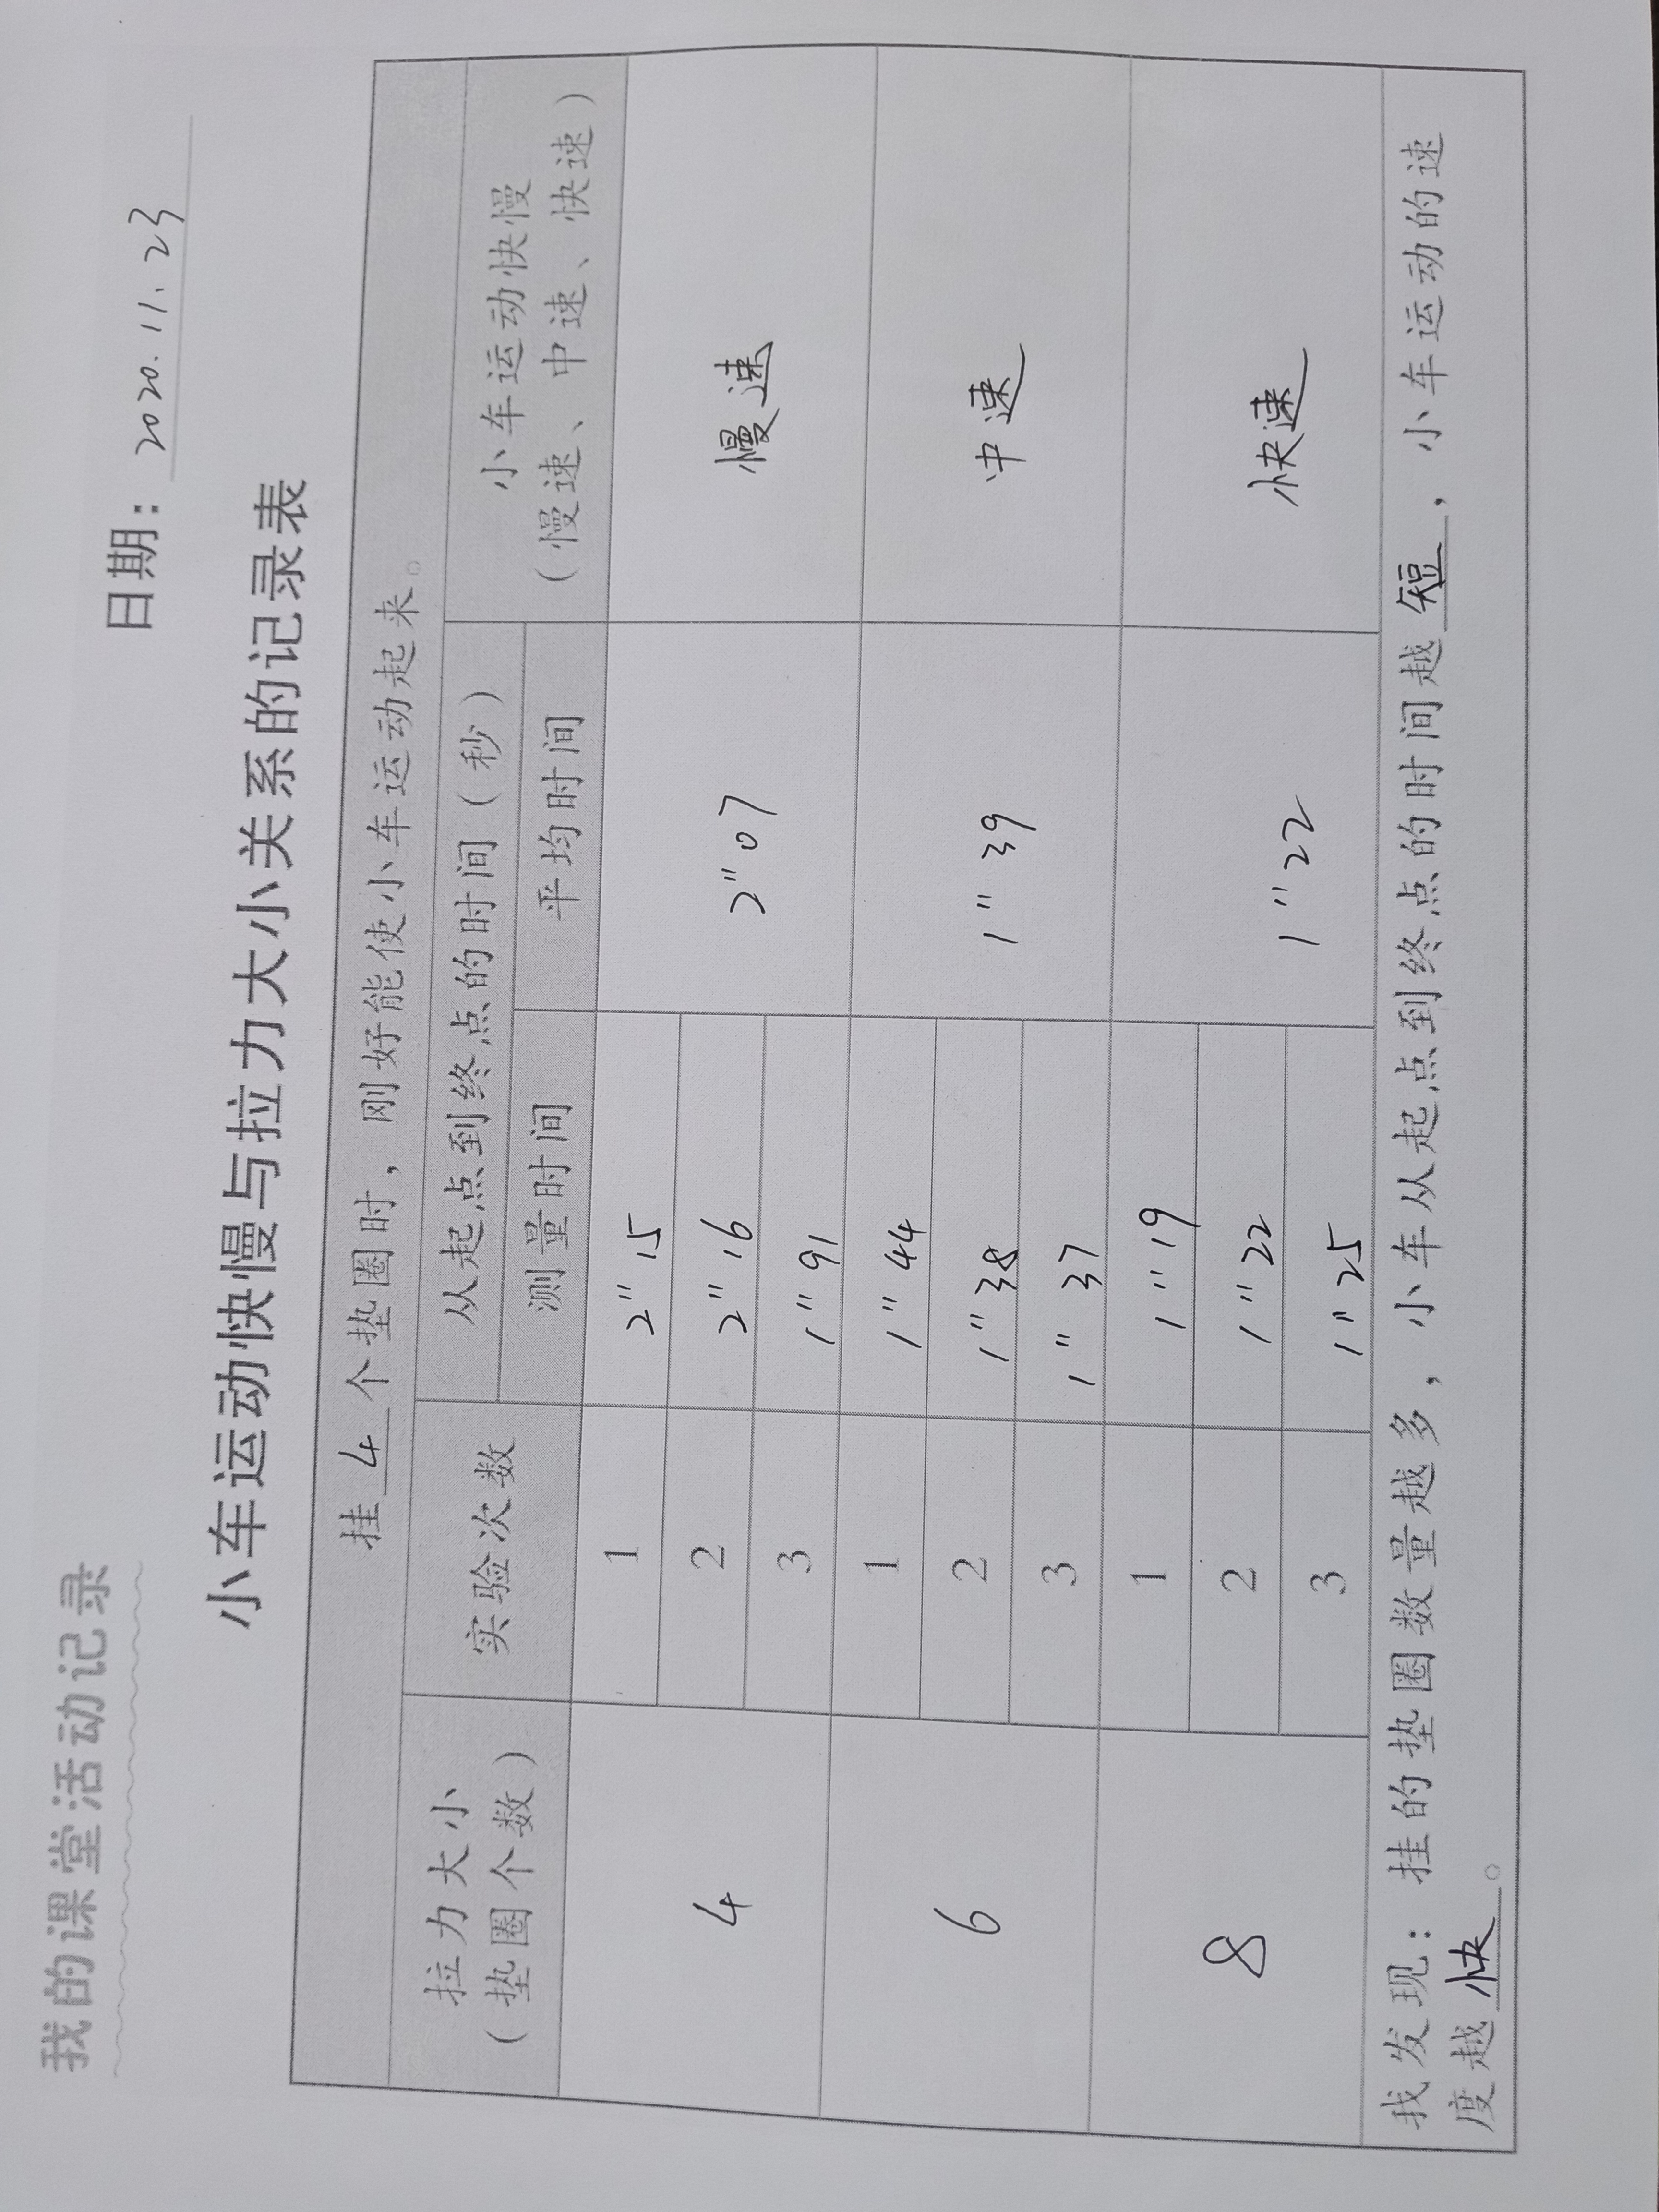 我的课堂活动记录
日期：2020.11.23
小车运动快慢与拉力大小关系的记录表
挂 4 个垫圈时，刚好能使小车运动起来。
拉力大小 实验次数 从起点到终点的时间（秒） 小车运动快慢
（垫圈个数） 测量时间 平均时间 （慢速、中速、快速）
4 1 2"15 2"07 慢速
2 2"16
3 1"91
6 1 1"44 1"39 中速
2 1"38
3 1"37
8 1 1"19 1"22 快速
2 1"22
3 1"25
我发现：挂的垫圈数量越多，小车从起点到终点的时间越 短 ，小车运动的速
度越 快 。